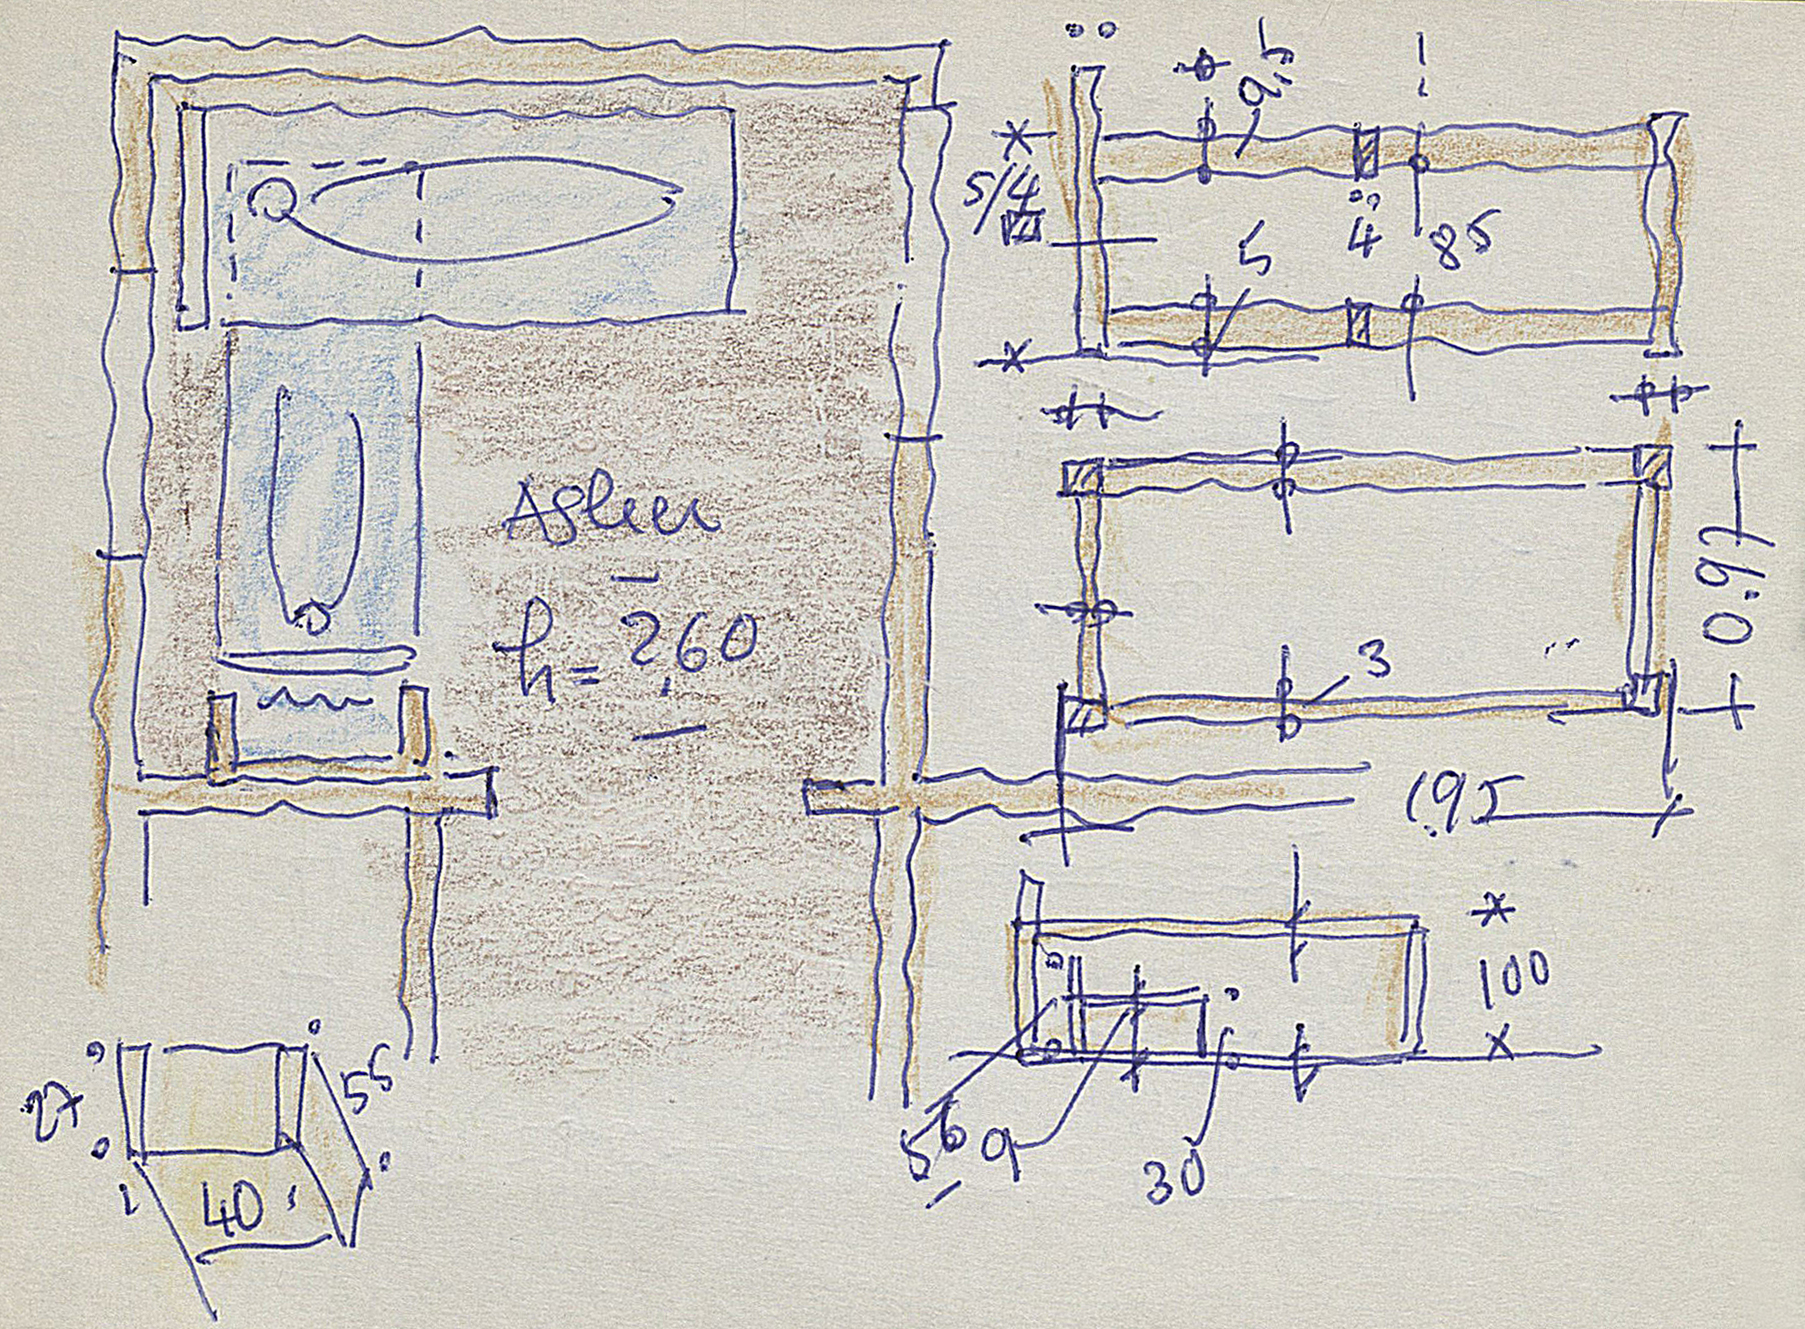 h = 2,60
9,5
5/4
5
4
8⁵
3
0.97
1.95
100
5⁶
9
30
27
5⁵
40